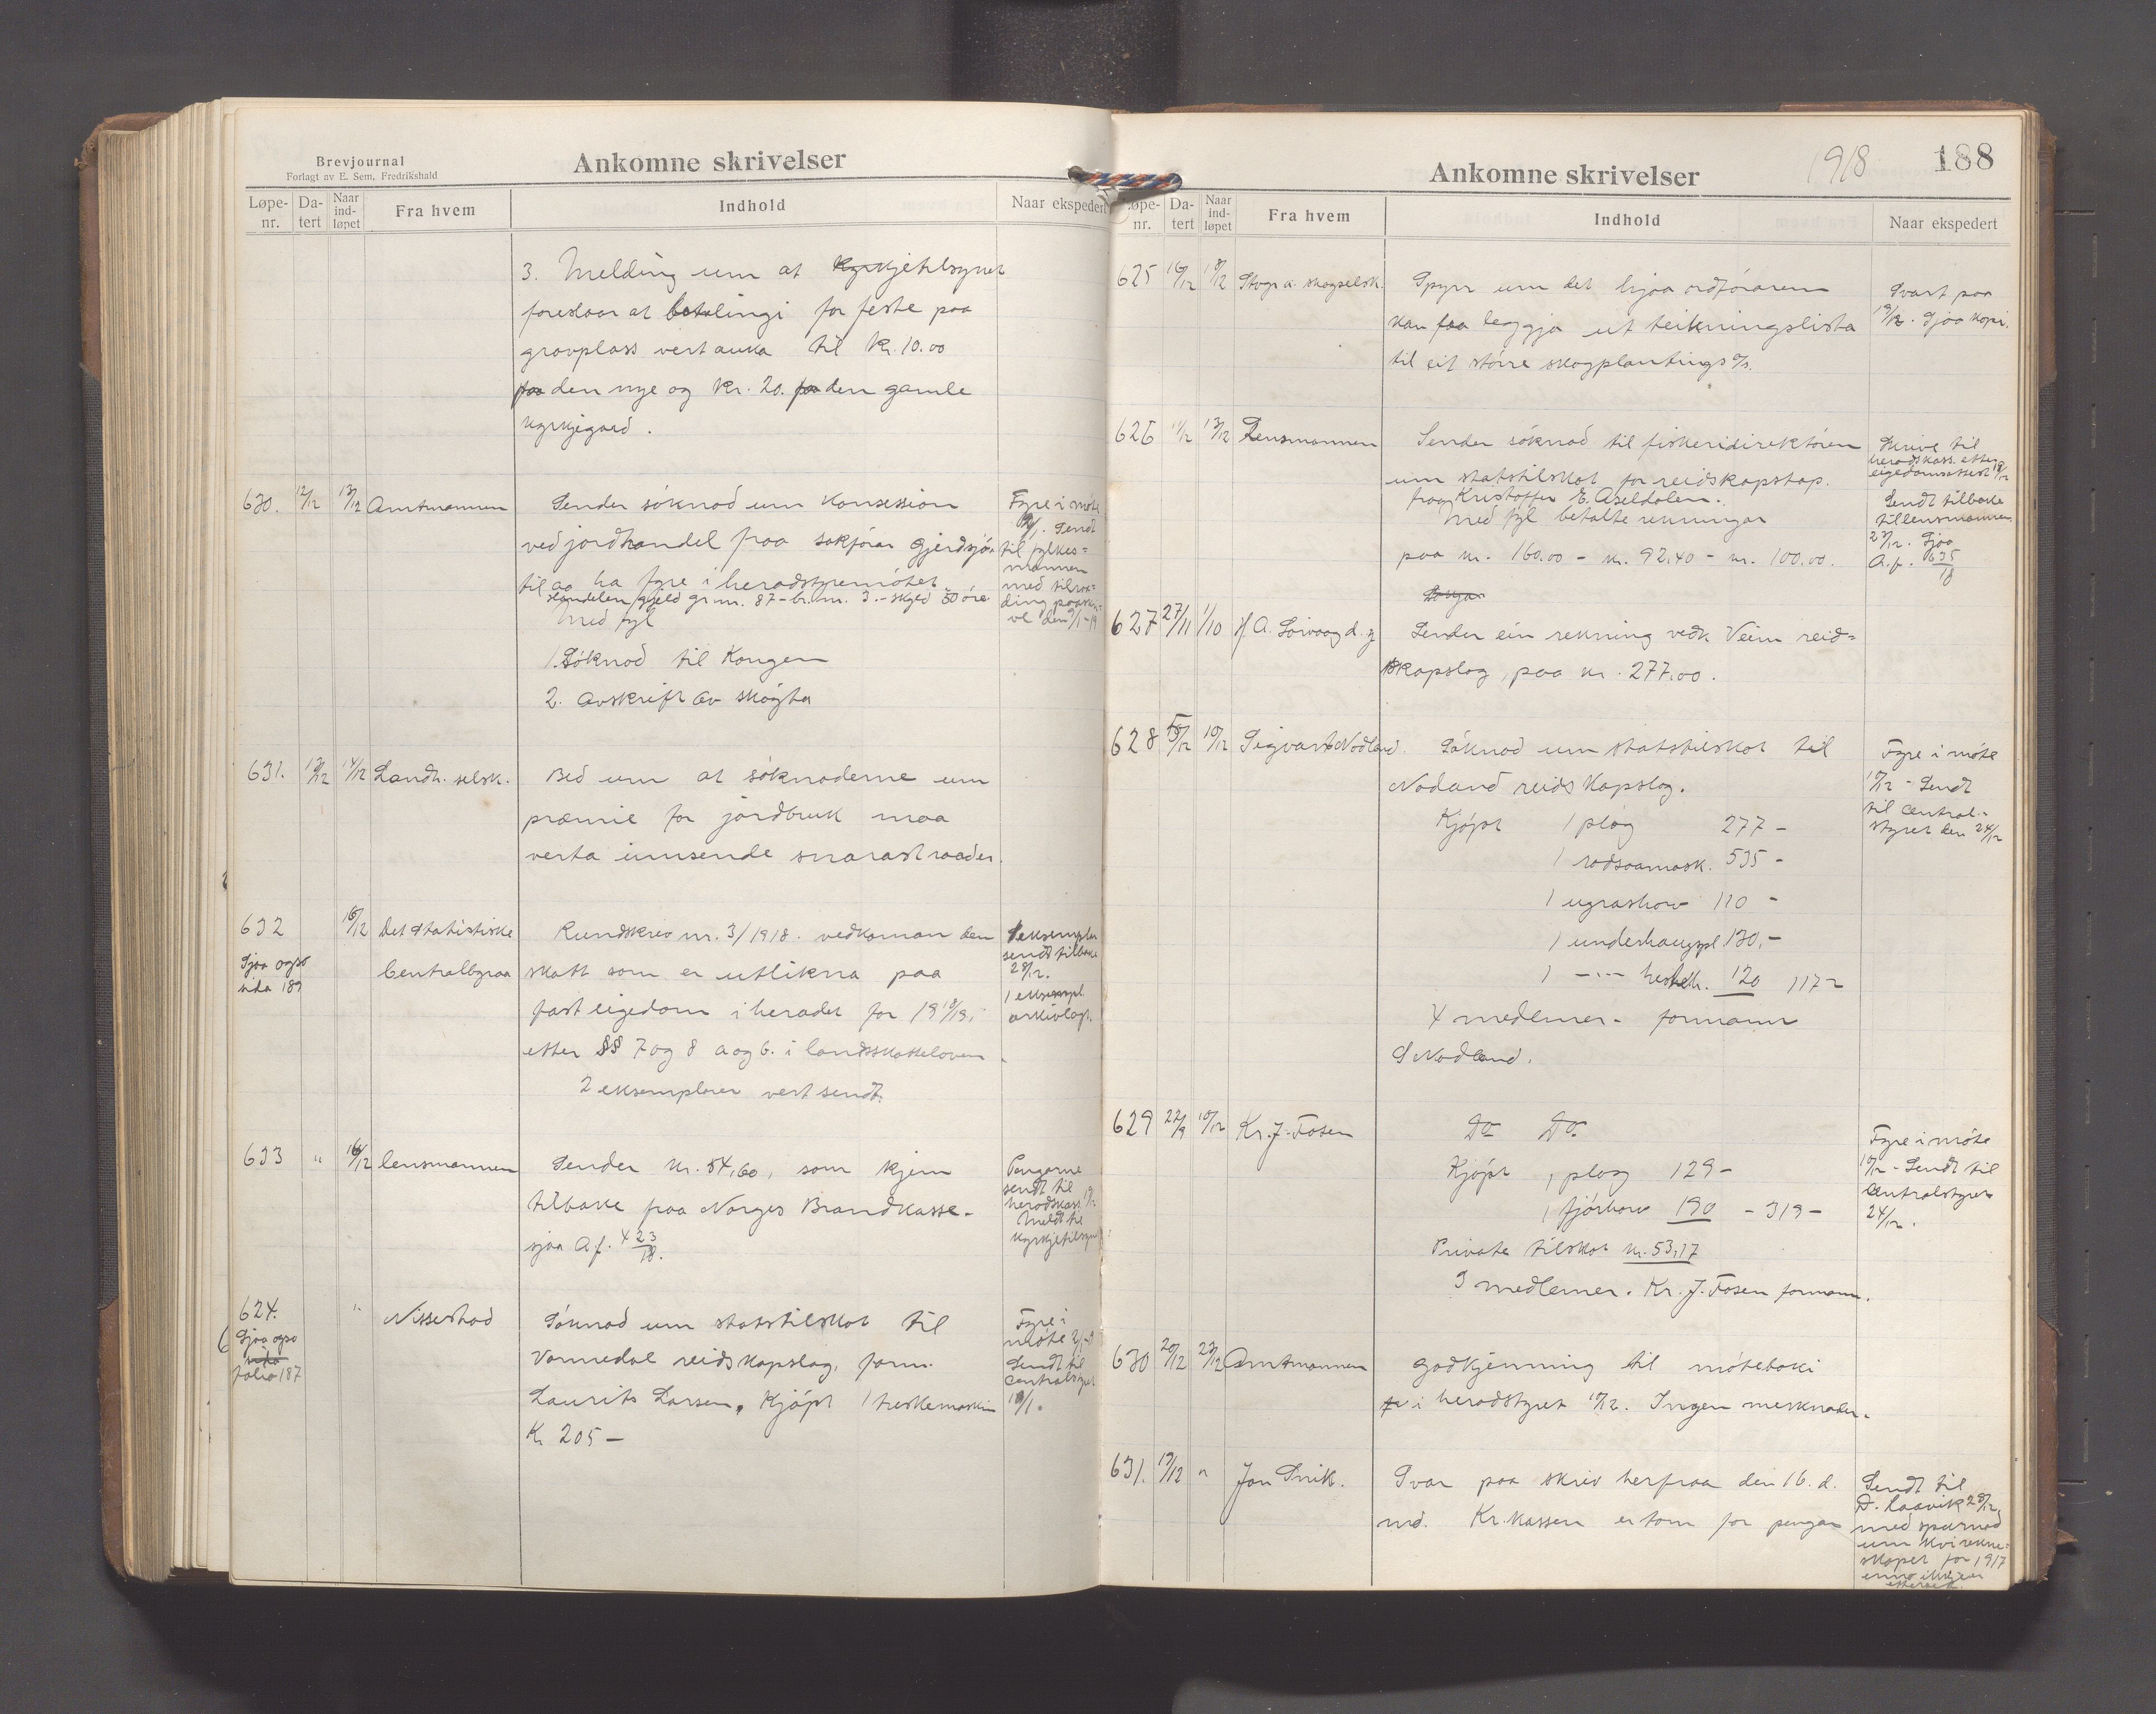 Brevjournal
Forlagt av E. Sem, Fredrikshald
Ankomne skrivelser
Løpe-nr. Da-tert Naar ind-løpet Fra hvem Indhold Naar ekspedert
3. Melding um at kyrkjetilsynet
foreslaar at betalingi for feste paa
gravplass vert auka til kr. 10.00
paa den nye og kr. 20. paa den gamle
kyrkjegard.
630. 12/12 13/12 Amtmannen
Sender söknad um konsession
ved jordhandel fraa sakförar Gjerdsjö
til aa ha fyre i heradstyremötet
Handelen gjeld gr.nr. 87 - br. nr. 3. - skyld 50 öre
Med fyl
1. Söknad til Kongen
2. Avskrift av skögta
Fyre i möte
Sendt
til fylkes=
mannen
med tilraa=
ding
631. 13/12 14/12 Landh. selsk.
Bed um at söknaderne um
præmie for jordbruk maa
verta innsende snarast raader.
632 16/12 Det Statistiske
Centralbyraa
Sjaa ogso
sida 189
Rundskriv nr. 3/1918. vedkoman den
skatt som er utlikna paa
fast eigedom i heradet for 1918/19,
etter §§ 7 og 8 a og b. i landsskatteloven
2 eksemplarer vert sendt.
1 eksemplar
sendt tilbake
28/12.
1 eksempl.
arkivlagt.
633 " 16/12 lensmannen
Sender kr. 54,60, som kjem
tilbake fraa Norges Brandkasse.
sjaa A.f. 423/18.
Pengarne
sendt til
heradskass.
Meldt til
kyrkjetilsyn
624. " Nissestad
Sjaa ogso
sida
folio 187
Söknad um statstilskot til
Vormedal reidskapslag, form.
Laurits Larsen. Kjöpt 1 treskemaskin
Kr 205 -
Fyre i
möte
Sendt til
Centralstyret
Ankomne skrivelser
1918
188
Løpe-nr. Da-tert Naar ind-løpet Fra hvem Indhold Naar ekspedert
625 16/12 18/12 Stvgr a. skogselsk.
Spyrr um det hjaa ordföraren
kan faa leggja ut teikningslista
til eit större skogplantings a/s.
Svart paa
19/12. Sjaa kopi.
626 11/12 13/12 Lensmannen
Sender söknad til fiskeridirektören
um statstilskot for reidskapstap.
fraa Kristoffer E. Aseldalen.
Med fyl betalte rekningar
paa kr. 160.00 - kr. 92,40 - kr. 100.00.
Skrive til
heradskass. etter
eigedomsattest 18/12
Sendt tilbake
til lensmannen
23/12. Sjaa
A.f. 635/18
627 27/11 1/10
Sender ein rekning vedk Veim reid=
skapslag, paa kr. 277.00.
628 5/12 10/12 Sigvart Nodland.
Söknad um statstilskot til
Nodland reidskapslag.
Kjöpt 1 plog 277 -
1 radsaamask. 535 -
1 ugrashorv 110 -
1 underhaugspl 130,-
1 -"- hestehk. 120 1172
4 medlemer - formann
S Nodland.
Fyre i möte
17/12 - Sendt
til Central-
styret den 24/12
629 22/9 10/12 Kr. J. Fosen
Do Do.
Kjöpt 1 plog 129 -
1 fjörhorv 190 - 319 -
Private tilskot kr. 53,17
3 medlemer. Kr. J. Fosen formann.
Fyre i möte
17/12 - Sendt til
Centralstyret
24/12.
630 20/12 23/12 Amtmannen
Godkjenning til möteboki
i heradstyret 17/12. Ingen merknader.
631. 19/12 " Jon Snik.
Svar paa skriv herfraa den 16. d.
md. Kr.kassen er tom for pengar
Sendt til
D. Laavik 28/12,
med spurnad
um kvi rekne=
skapet for 1917
enno ikkje er